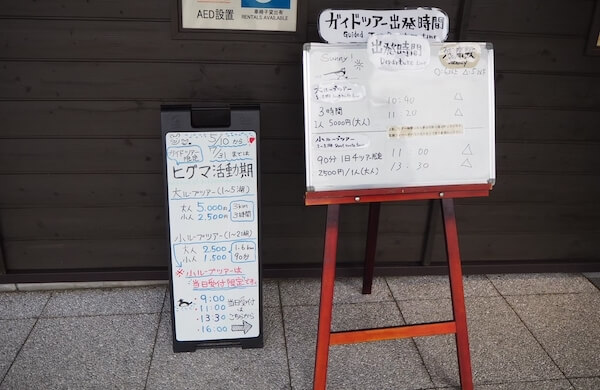 AED設置
車椅子貸出有
RENTALS AVAILABLE
ガイドツアー出発時間
Sunny!
出発時間
Departure time
3時間
1人 5000円(大人)
10:40 △
11:20 △
小ループツアー
90分 1日4ツアー限定
2500円/1人(大人)
11:00 △
13:30 △
5/10から
7/31までは
ガイドツアー限定
ヒグマ活動期
大ループツアー(1~5湖)
大人 5.000円
小人 2.500円
3km
3時間
小ループツアー(1~2湖)
大人 2.500
小人 1.500
1.6km
90分
※小ループツアーは
当日受付限定です。
・9:00
・11:00
・13:30
・16:00
当日受付は
こちらから